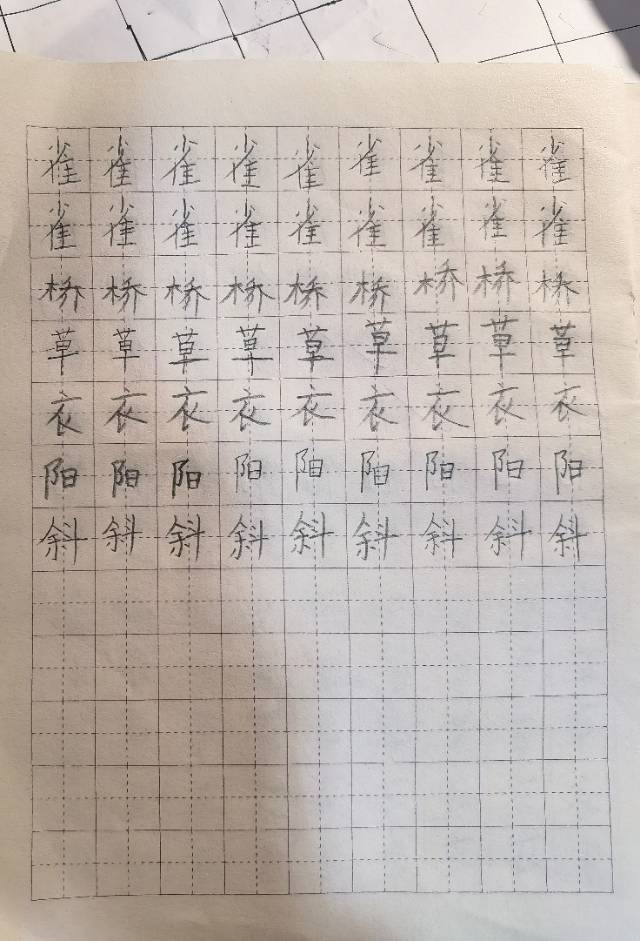 雀雀雀雀雀雀雀雀雀
雀雀雀雀雀雀雀雀雀
桥桥桥桥桥桥桥桥桥
草草草草草草草草草
衣衣衣衣衣衣衣衣衣
阳阳阳阳阳阳阳阳阳
斜斜斜斜斜斜斜斜斜